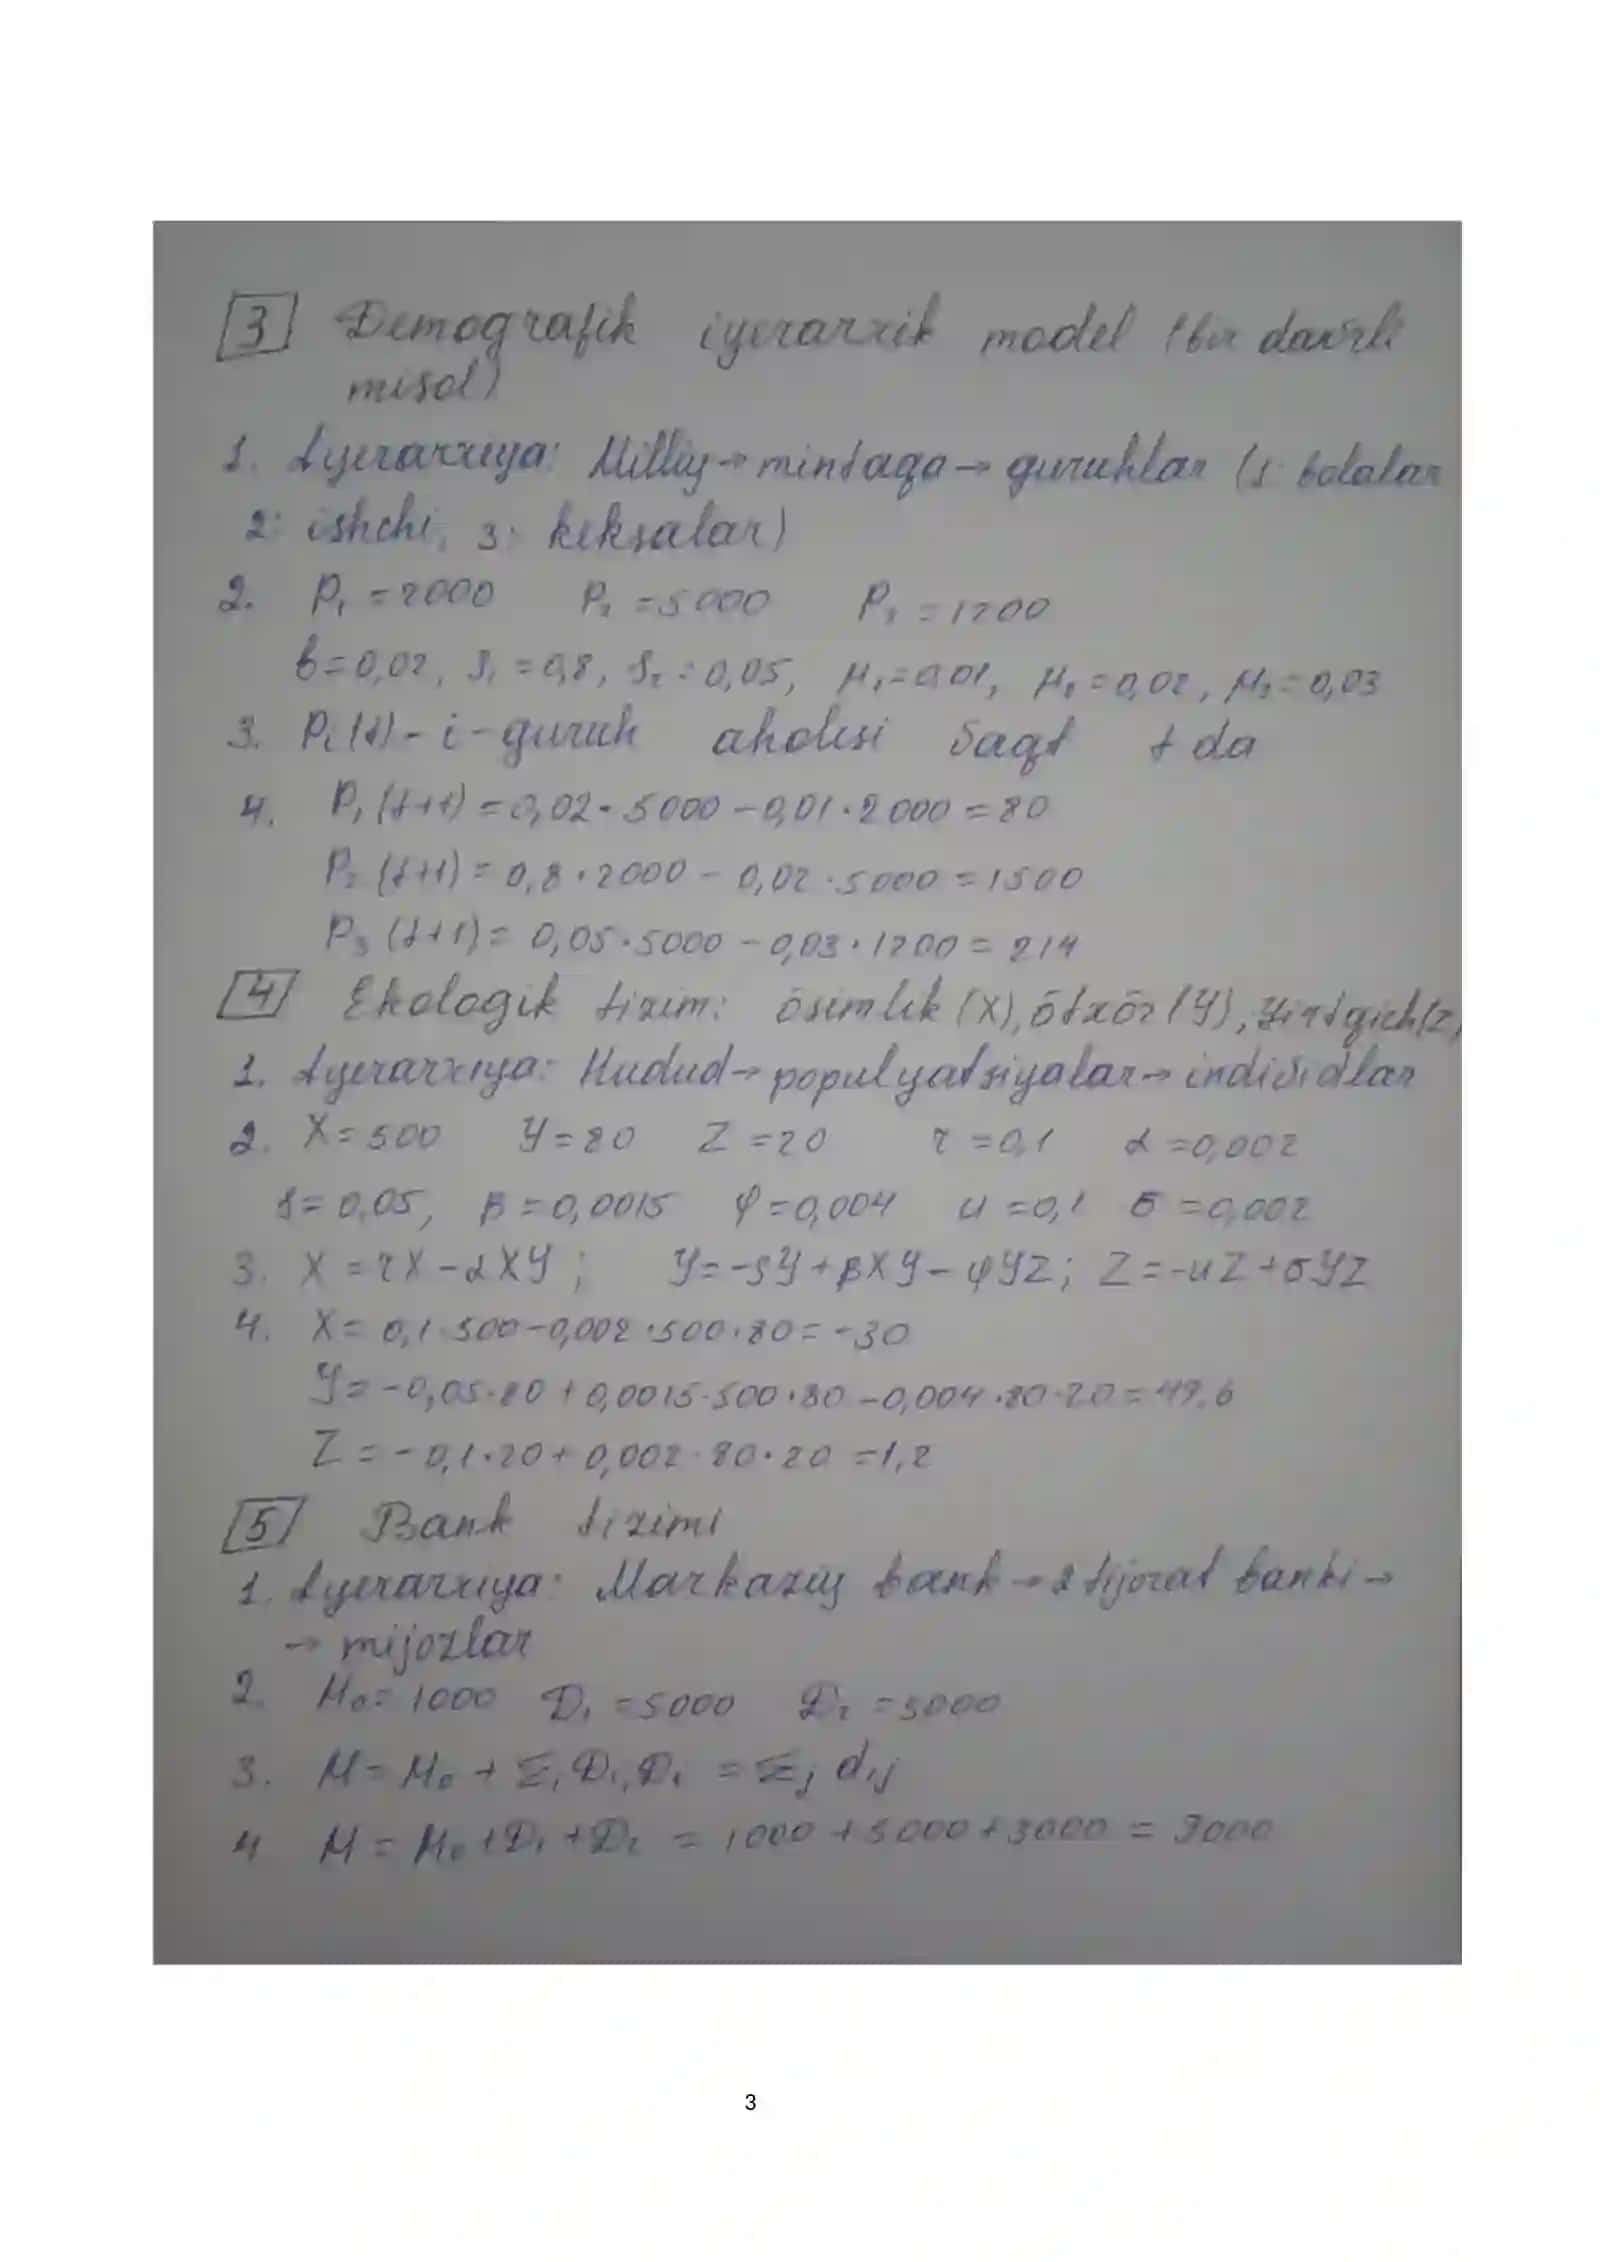 3 Demografik iyerarxik model (bir davrli
misol)
1. Iyerarxiya: Milliy → mintaqa → guruhlar (1: bolalar
2: ishchi, 3: keksalar)
2. P₁ = 2000 P₂ = 5000 P₃ = 1200
b = 0,02, S₁ = 0,8, S₂ = 0,05, μ₁ = 0,01, μ₂ = 0,02, μ₃ = 0,03
3. Pᵢ(t) - i - guruh aholisi vaqt t da
4. P₁(t+1) = 0,02 · 5000 - 0,01 · 2000 = 80
P₂(t+1) = 0,8 · 2000 - 0,02 · 5000 = 1500
P₃(t+1) = 0,05 · 5000 - 0,03 · 1200 = 214
4 Ekologik tizim: õsimlik (X), õtxõr (Y), yirtqich (Z)
1. Iyerarxiya: Hudud → populyatsiyalar → individlar
2. X = 500 Y = 80 Z = 20 r = 0,1 α = 0,002
δ = 0,05, β = 0,0015 φ = 0,004 u = 0,1 σ = 0,002
3. X = rX - αXY; Y = -δY + βXY - φYZ; Z = -uZ + σYZ
4. X = 0,1 · 500 - 0,002 · 500 · 80 = -30
Y = -0,05 · 80 + 0,0015 · 500 · 80 - 0,004 · 80 · 20 = 49,6
Z = -0,1 · 20 + 0,002 · 80 · 20 = 1,2
5 Bank tizimi
1. Iyerarxiya: Markaziy bank → 2 tijorat banki →
→ mijozlar
2. M₀ = 1000 D₁ = 5000 D₂ = 3000
3. M = M₀ + Σᵢ Dᵢ, Dᵢ = Σⱼ dᵢⱼ
4 M = M₀ + D₁ + D₂ = 1000 + 5000 + 3000 = 9000
3